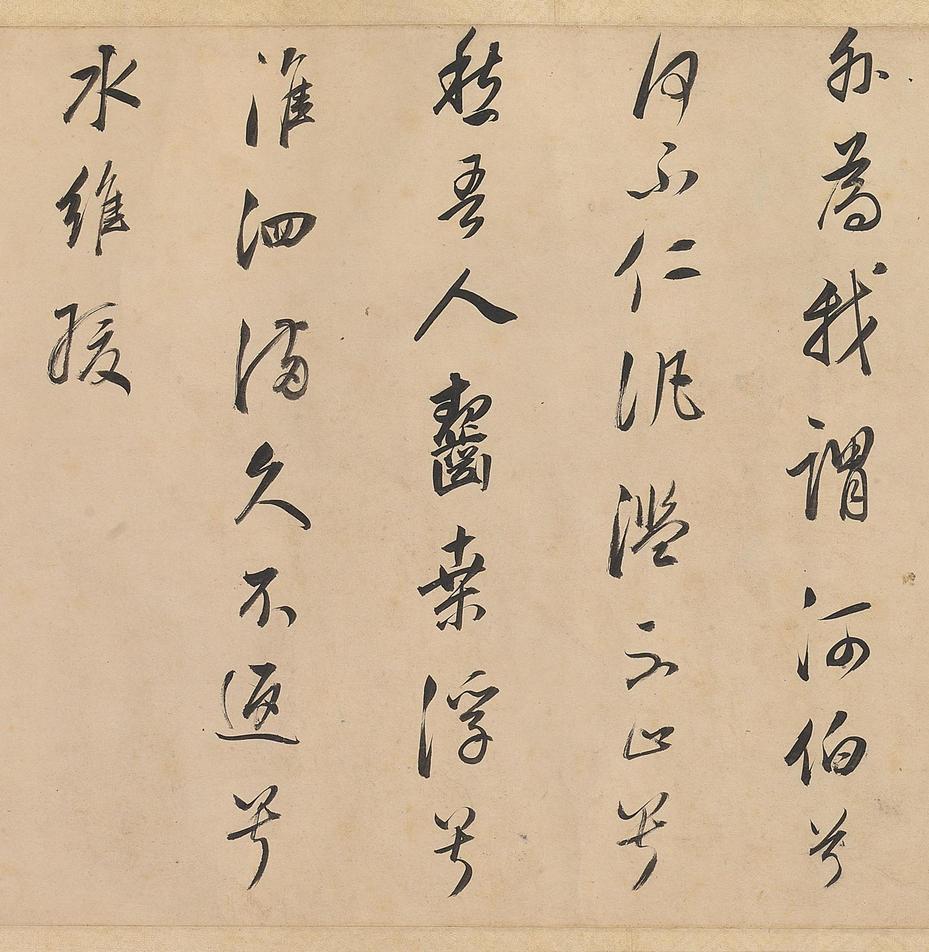 外為我謂河伯兮
何不仁汎濫不止兮
愁吾人齧桒浮兮
淮泗滿久不返兮
水維緩